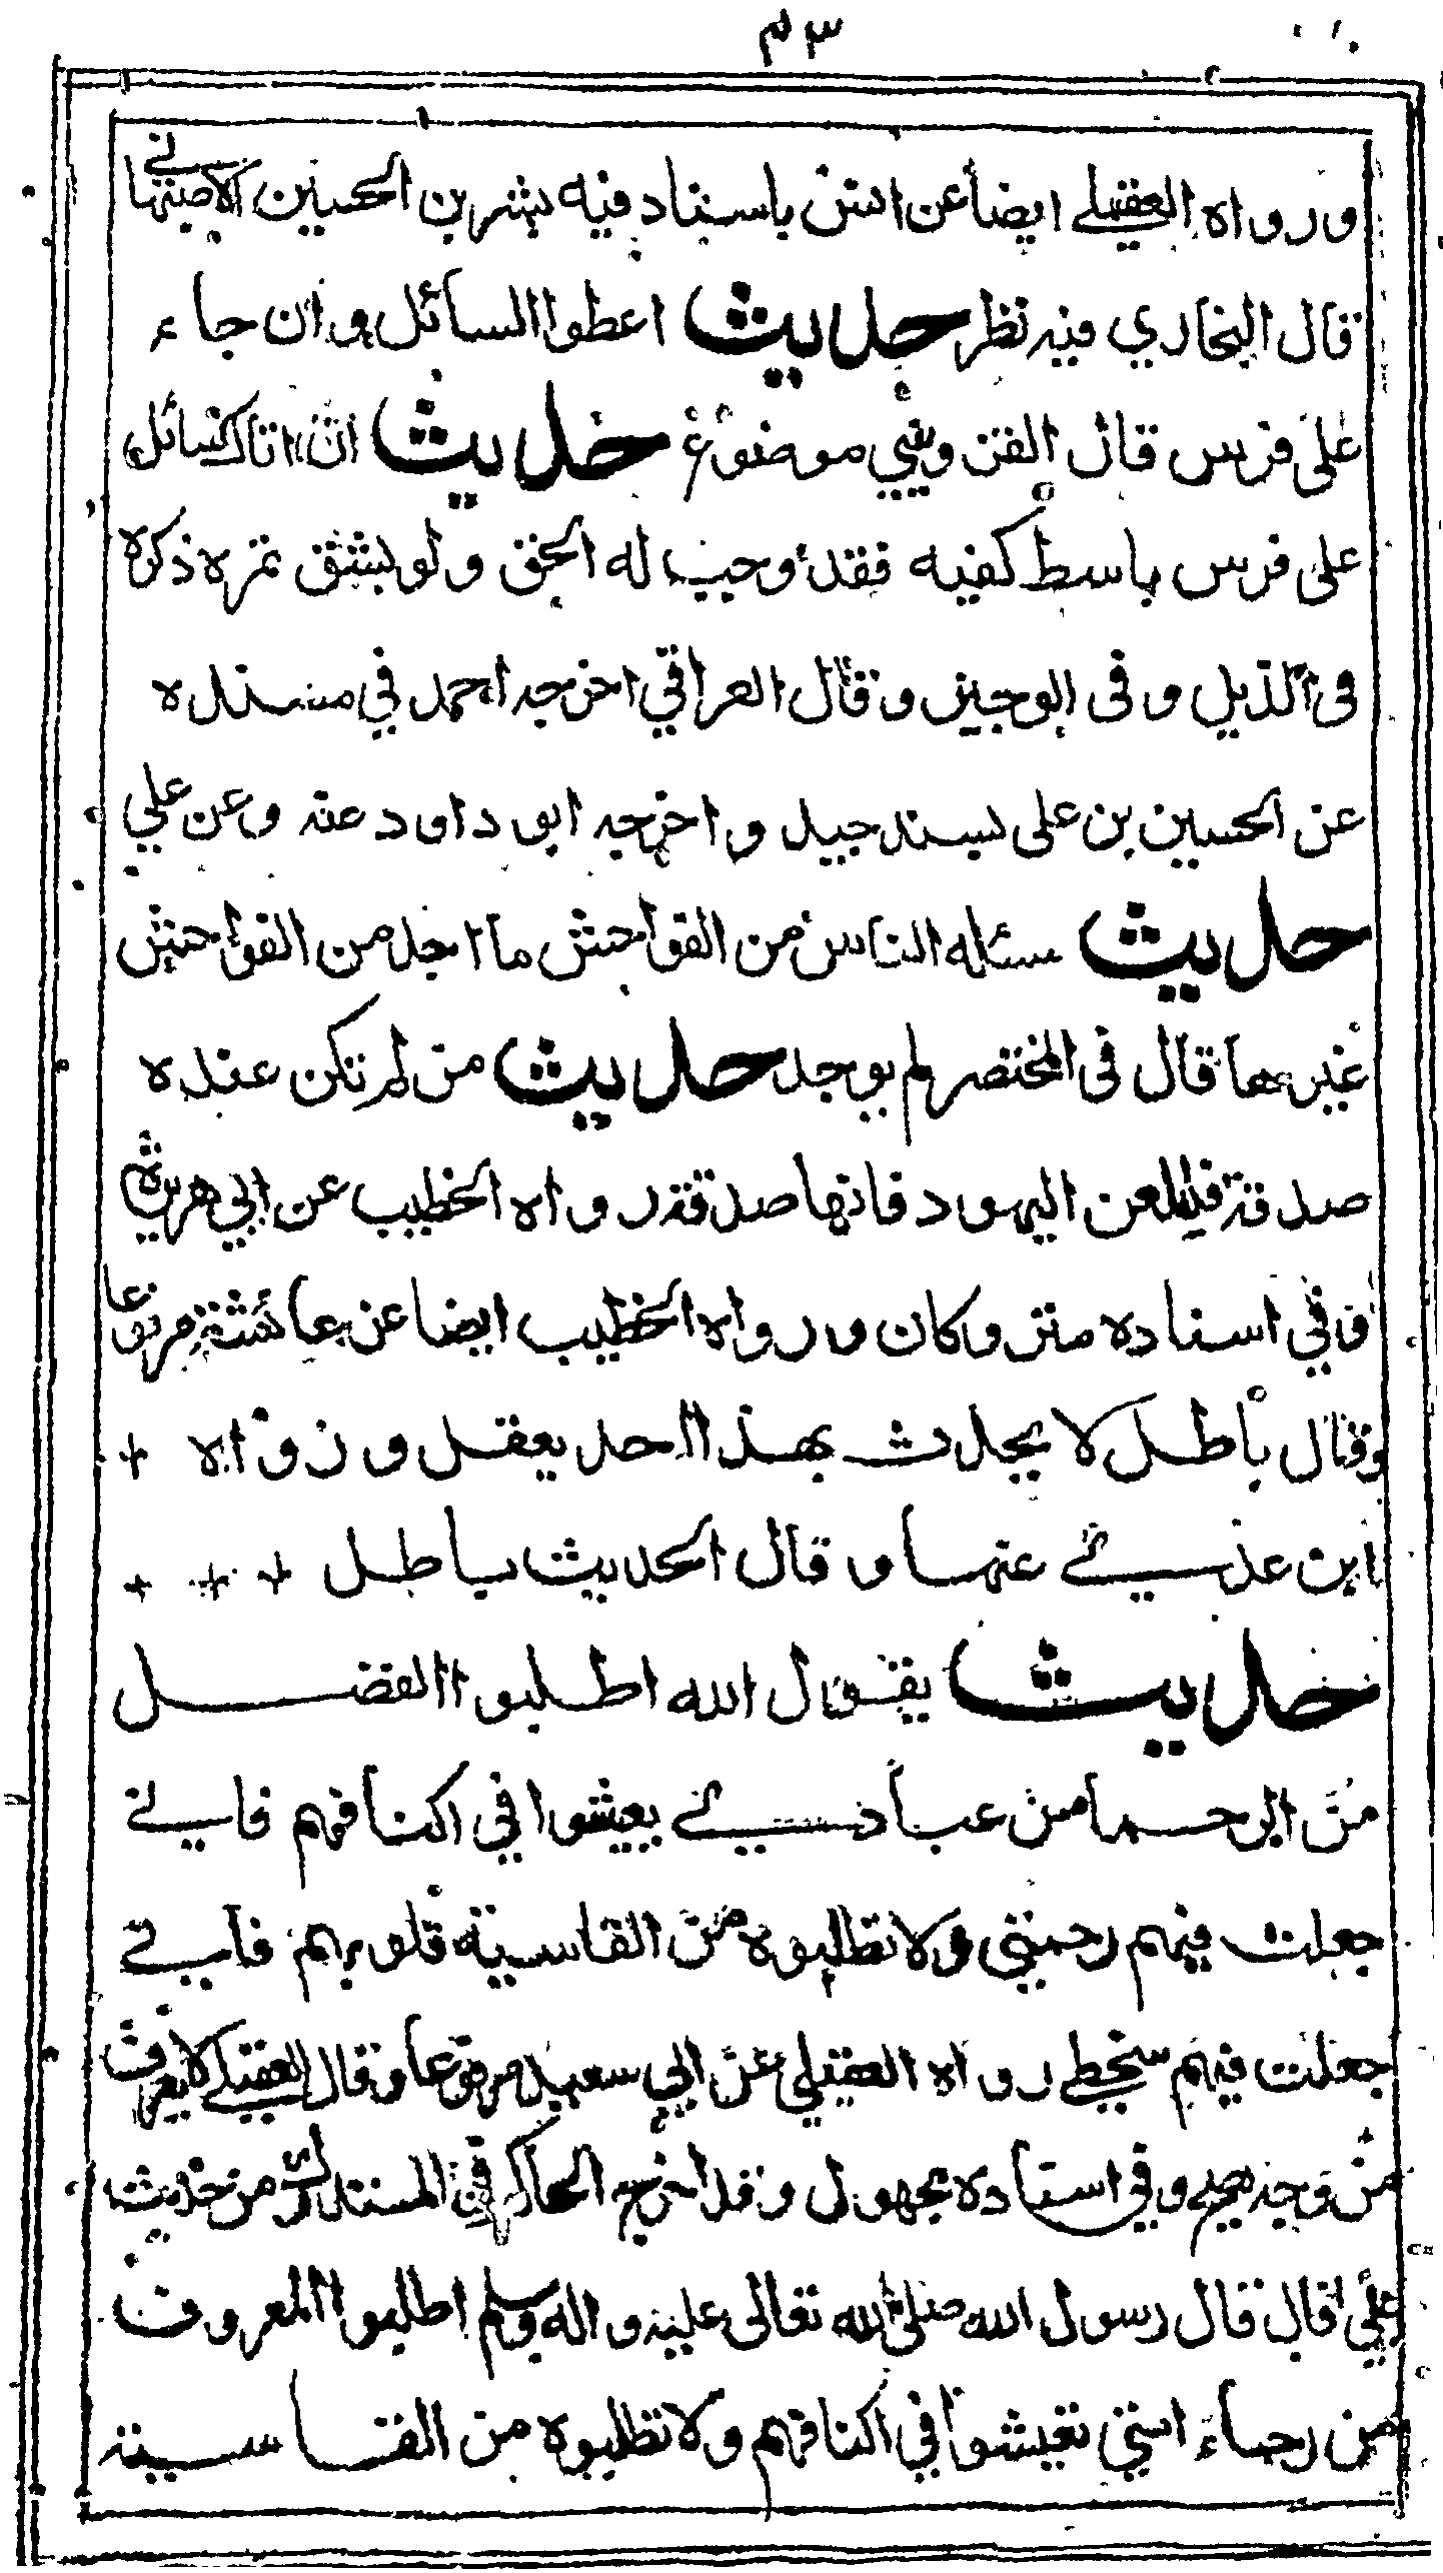 ٣٤
ورواه العقيلي ايضا عن انس باسناد فيه بشر بن الحسين الاصبهاني
قال البخاري فيه نظر حديث اعطوا السائل وان جاء
على فرس قال القزويني موضوع حديث ان اتاك سائل
على فرس باسط كفيه فقد وجب له الحق ولو بشق تمره ذكره
فى الذيل و فى الوجيز وقال العراقي اخرجه احمد في مسنده
عن الحسين بن على بسند جيد واخرجه ابو داود عنه وعن علي
حديث مسئله الناس من الفواحش ما احل من الفواحش
غيرها قال فى المختصر لم يوجد حديث من لم تكن عنده
صدقة فليلعن اليهود فانها صدقة رواه الخطيب عن ابي هريرة
وفي اسناده متروكان ورواه الخطيب ايضا عن عائشة مرفوعا
وقال باطل لا يحدث بهذا احد يعقل ورواه
ابن عدي عنها وقال الحديث باطل
حديث يقول الله اطلبوا الفضل
من الرحما من عبادي يعيشوا في اكنافهم فاني
جعلت فيهم رحمتي ولا تطلبوه من القاسية قلوبهم فاني
جعلت فيهم سخطي رواه العقيلي عن ابي سعيد مرفوعا وقال العقيلي لا يعرف
من وجه يصح وفي اسناده مجهول وقد اخرجه الحاكم في المستدرك من حديث
علي قال قال رسول الله صلى الله تعالى عليه واله وسلم اطلبوا المعروف
من رحماء امتي تعيشوا في اكنافهم ولا تطلبوه من القاسية